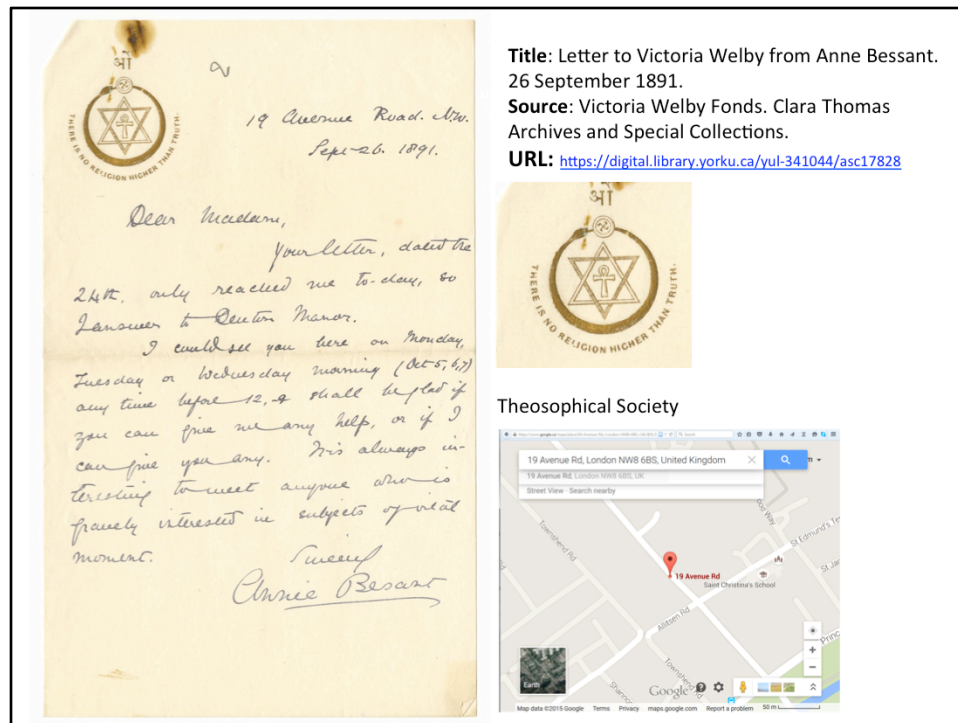 ओं
THERE IS NO RELIGION HIGHER THAN TRUTH.
19 Avenue Road. N.W.
Sept-26. 1891.
Dear Madam,
Your letter, dated the
24th, only reached me to-day, so
I answer to Denton Manor.
I could see you here on Monday,
Tuesday or Wednesday morning (Oct 5, 6, 7)
any time before 12, & shall be glad if
you can give me any help, or if I
can give you any. It is always in-
teresting to meet anyone who is
gravely interested in subjects of vital
moment.
Sincely
Annie Besant
Title: Letter to Victoria Welby from Anne Bessant.
26 September 1891.
Source: Victoria Welby Fonds. Clara Thomas
Archives and Special Collections.
URL: https://digital.library.yorku.ca/yul-341044/asc17828
ओं
THERE IS NO RELIGION HIGHER THAN TRUTH.
Theosophical Society
Search
19 Avenue Rd, London NW8 6BS, United Kingdom
19 Avenue Rd, London NW8 6BS, UK
Street View · Search nearby
Townshend Rd
Townshend Rd
St Edmund's Te
St Ja
19 Avenue Rd
Saint Christina's School
Allitsen Rd
Princ
Shanno
Earth
Google
Map data ©2015 Google Terms Privacy maps.google.com Report a problem 50 m